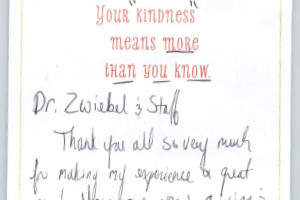 YOUR KINDNESS
MEANS MORE
THAN YOU KNOW.
Dr. Zwiebel & Staff
Thank you all so very much
for making my experience a great